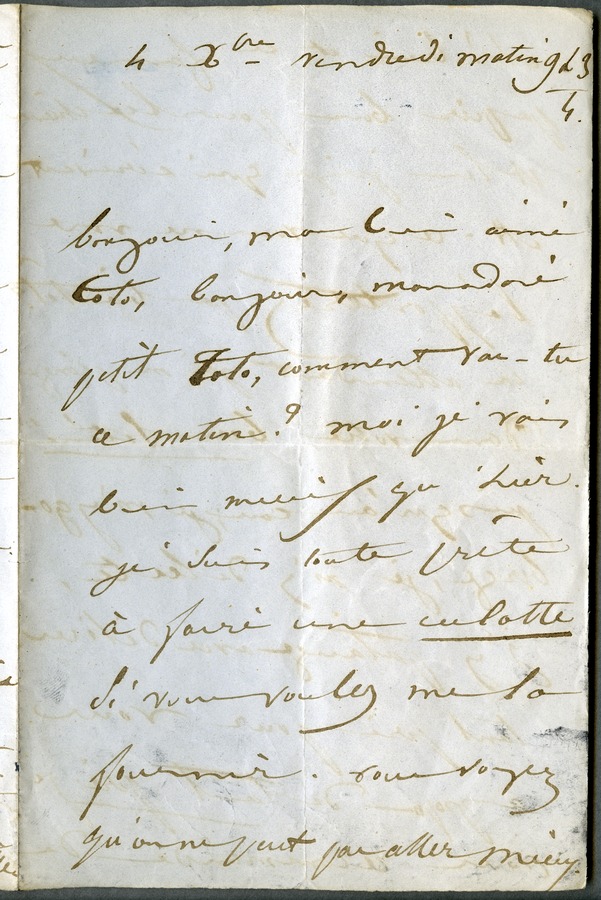 4 Xbre vendredi matin 9h 3/4.
bonjour, mon bien aimé
Toto, bonjour, mon adoré
petit Toto, comment vas-tu
ce matin ? moi je vais
bien mieux qu'hier.
je suis toute prête
à faire une culotte
si vous voulez me la
fournir. vous voyez
qu'on ne peut pas aller mieux.